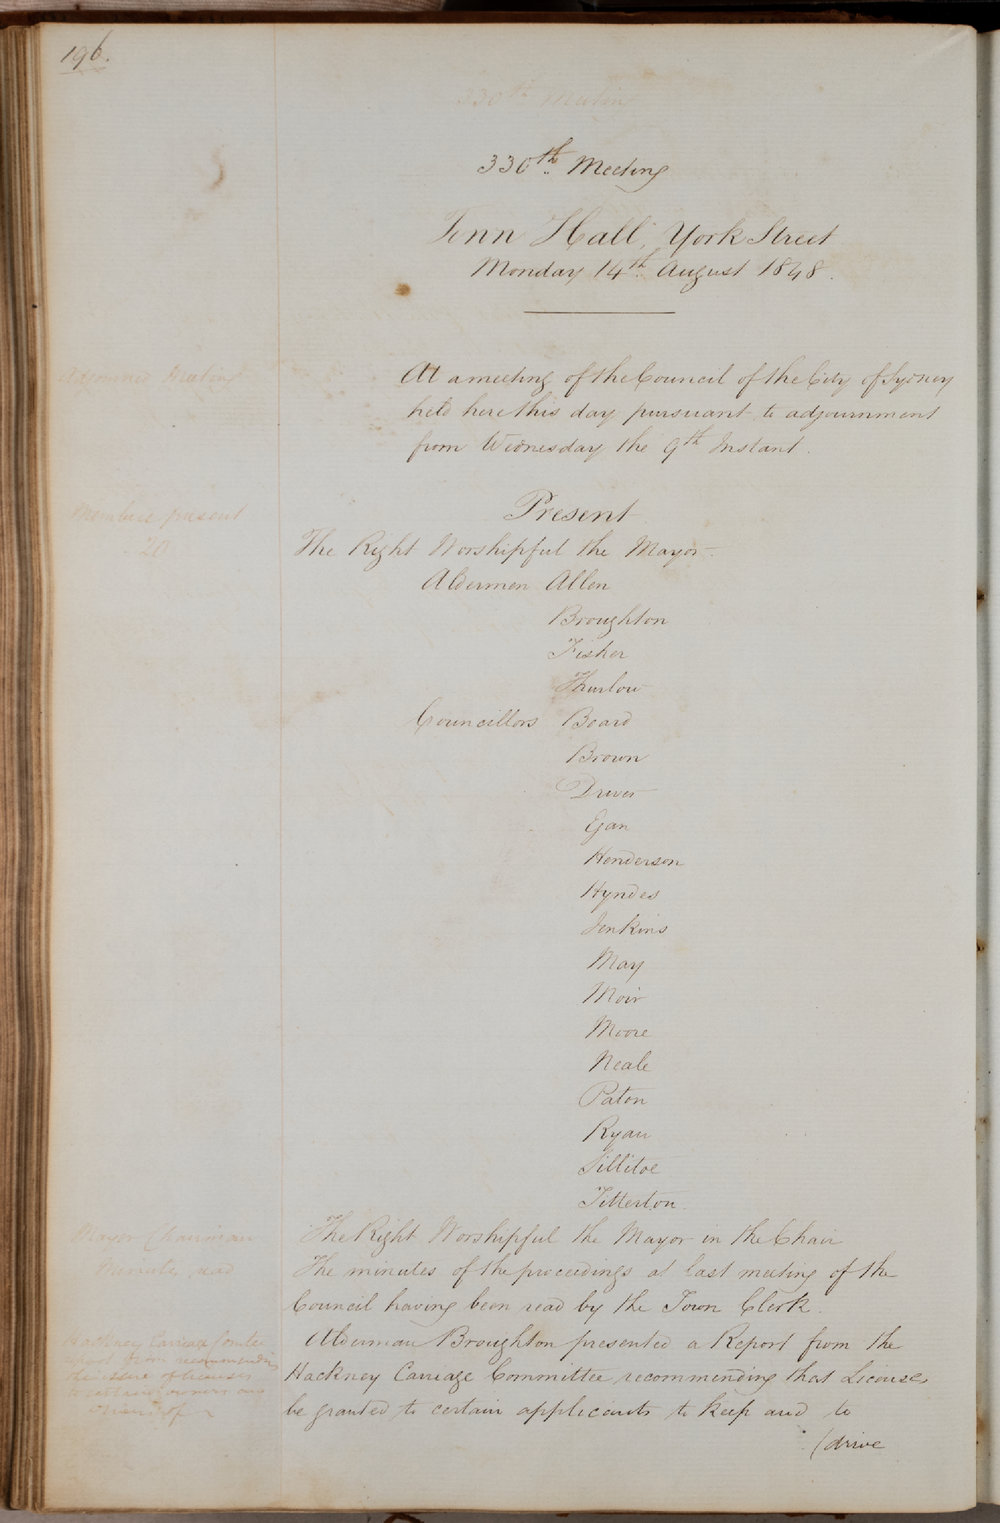 196.
330th Meeting
330th Meeting
Town Hall, York Street
Monday 14th August 1848.
Adjourned Meeting
At a meeting of the Council of the City of Sydney
held here this day pursuant to adjournment
from Wednesday the 9th Instant.
Members present
20
Present
The Right Worshipful the Mayor
Aldermen Allen
Broughton
Fisher
Thurlow
Councillors Beard
Brown
Driver
Egan
Henderson
Hyndes
Jenkins
May
Moir
Moore
Neale
Paton
Ryan
Sillitoe
Titterton
Mayor Chairman
The Right Worshipful the Mayor in the Chair
Minutes read
The minutes of the proceedings at last meeting of the
Council having been read by the Town Clerk.
Hackney Carriage Comtee
report from recommending
the issue of licenses
to certain owners and
drivers of
Alderman Broughton presented a Report from the
Hackney Carriage Committee recommending that Licenses
be granted to certain applicants to keep and to
(drive